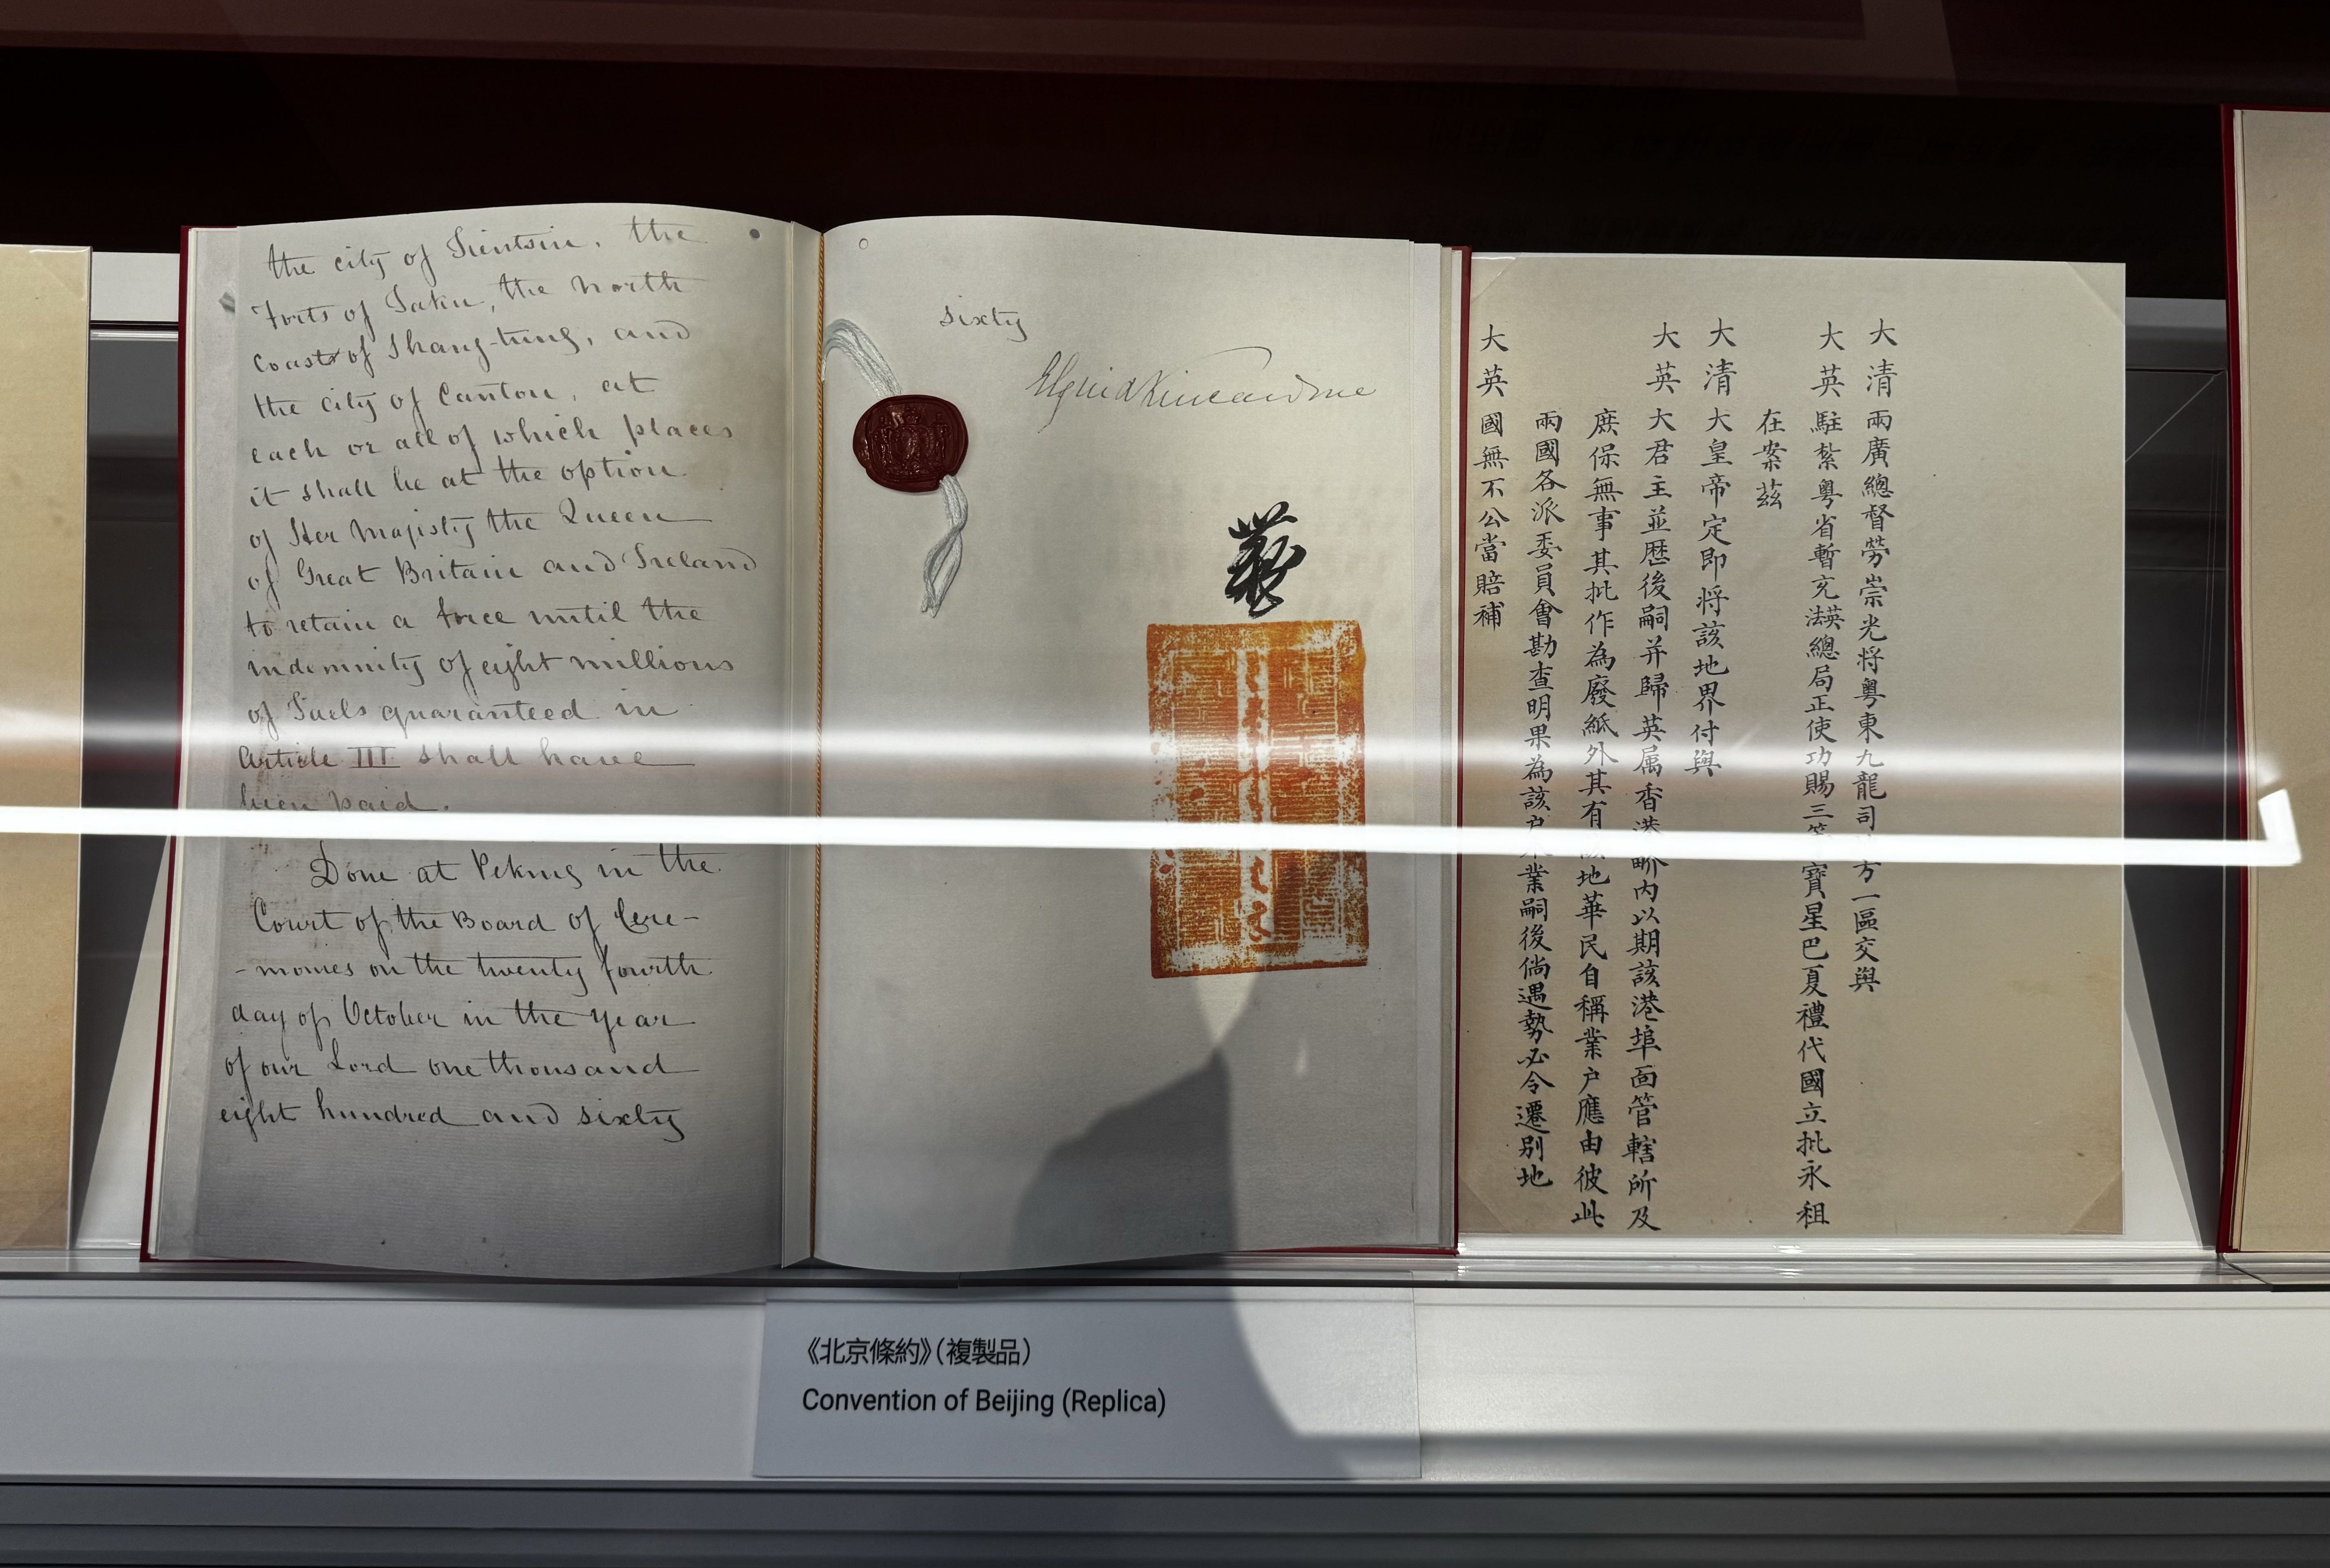 the city of Tientsin, the
Forts of Taku, the north
coast of Shang-tung, and
the city of Canton, at
each or all of which places
it shall be at the option
of Her Majesty the Queen
of Great Britain and Ireland
to retain a force until the
indemnity of eight millions
of Taels guaranteed in
Article III shall have
been paid.
Done at Peking in the
Court of the Board of Cere-
-monies on the twenty fourth
day of October in the year
of our Lord one thousand
eight hundred and sixty
sixty
Elgin & Kincardine
大清兩廣總督勞崇光将粤東九龍司方一區交與
大英駐紮粤省暫充英法總局正使功賜三等寶星巴夏禮代國立批永租
在案茲
大清大皇帝定即将該地界付與
大英大君主並歷後嗣并歸英属香港界内以期該港埠面管轄所及
庶保無事其批作為廢紙外其有該地華民自稱業户應由彼此
兩國各派委員會勘查明果為該户業嗣後倘遇勢必令遷别地
大英國無不公當賠補
《北京條約》（複製品）
Convention of Beijing (Replica)